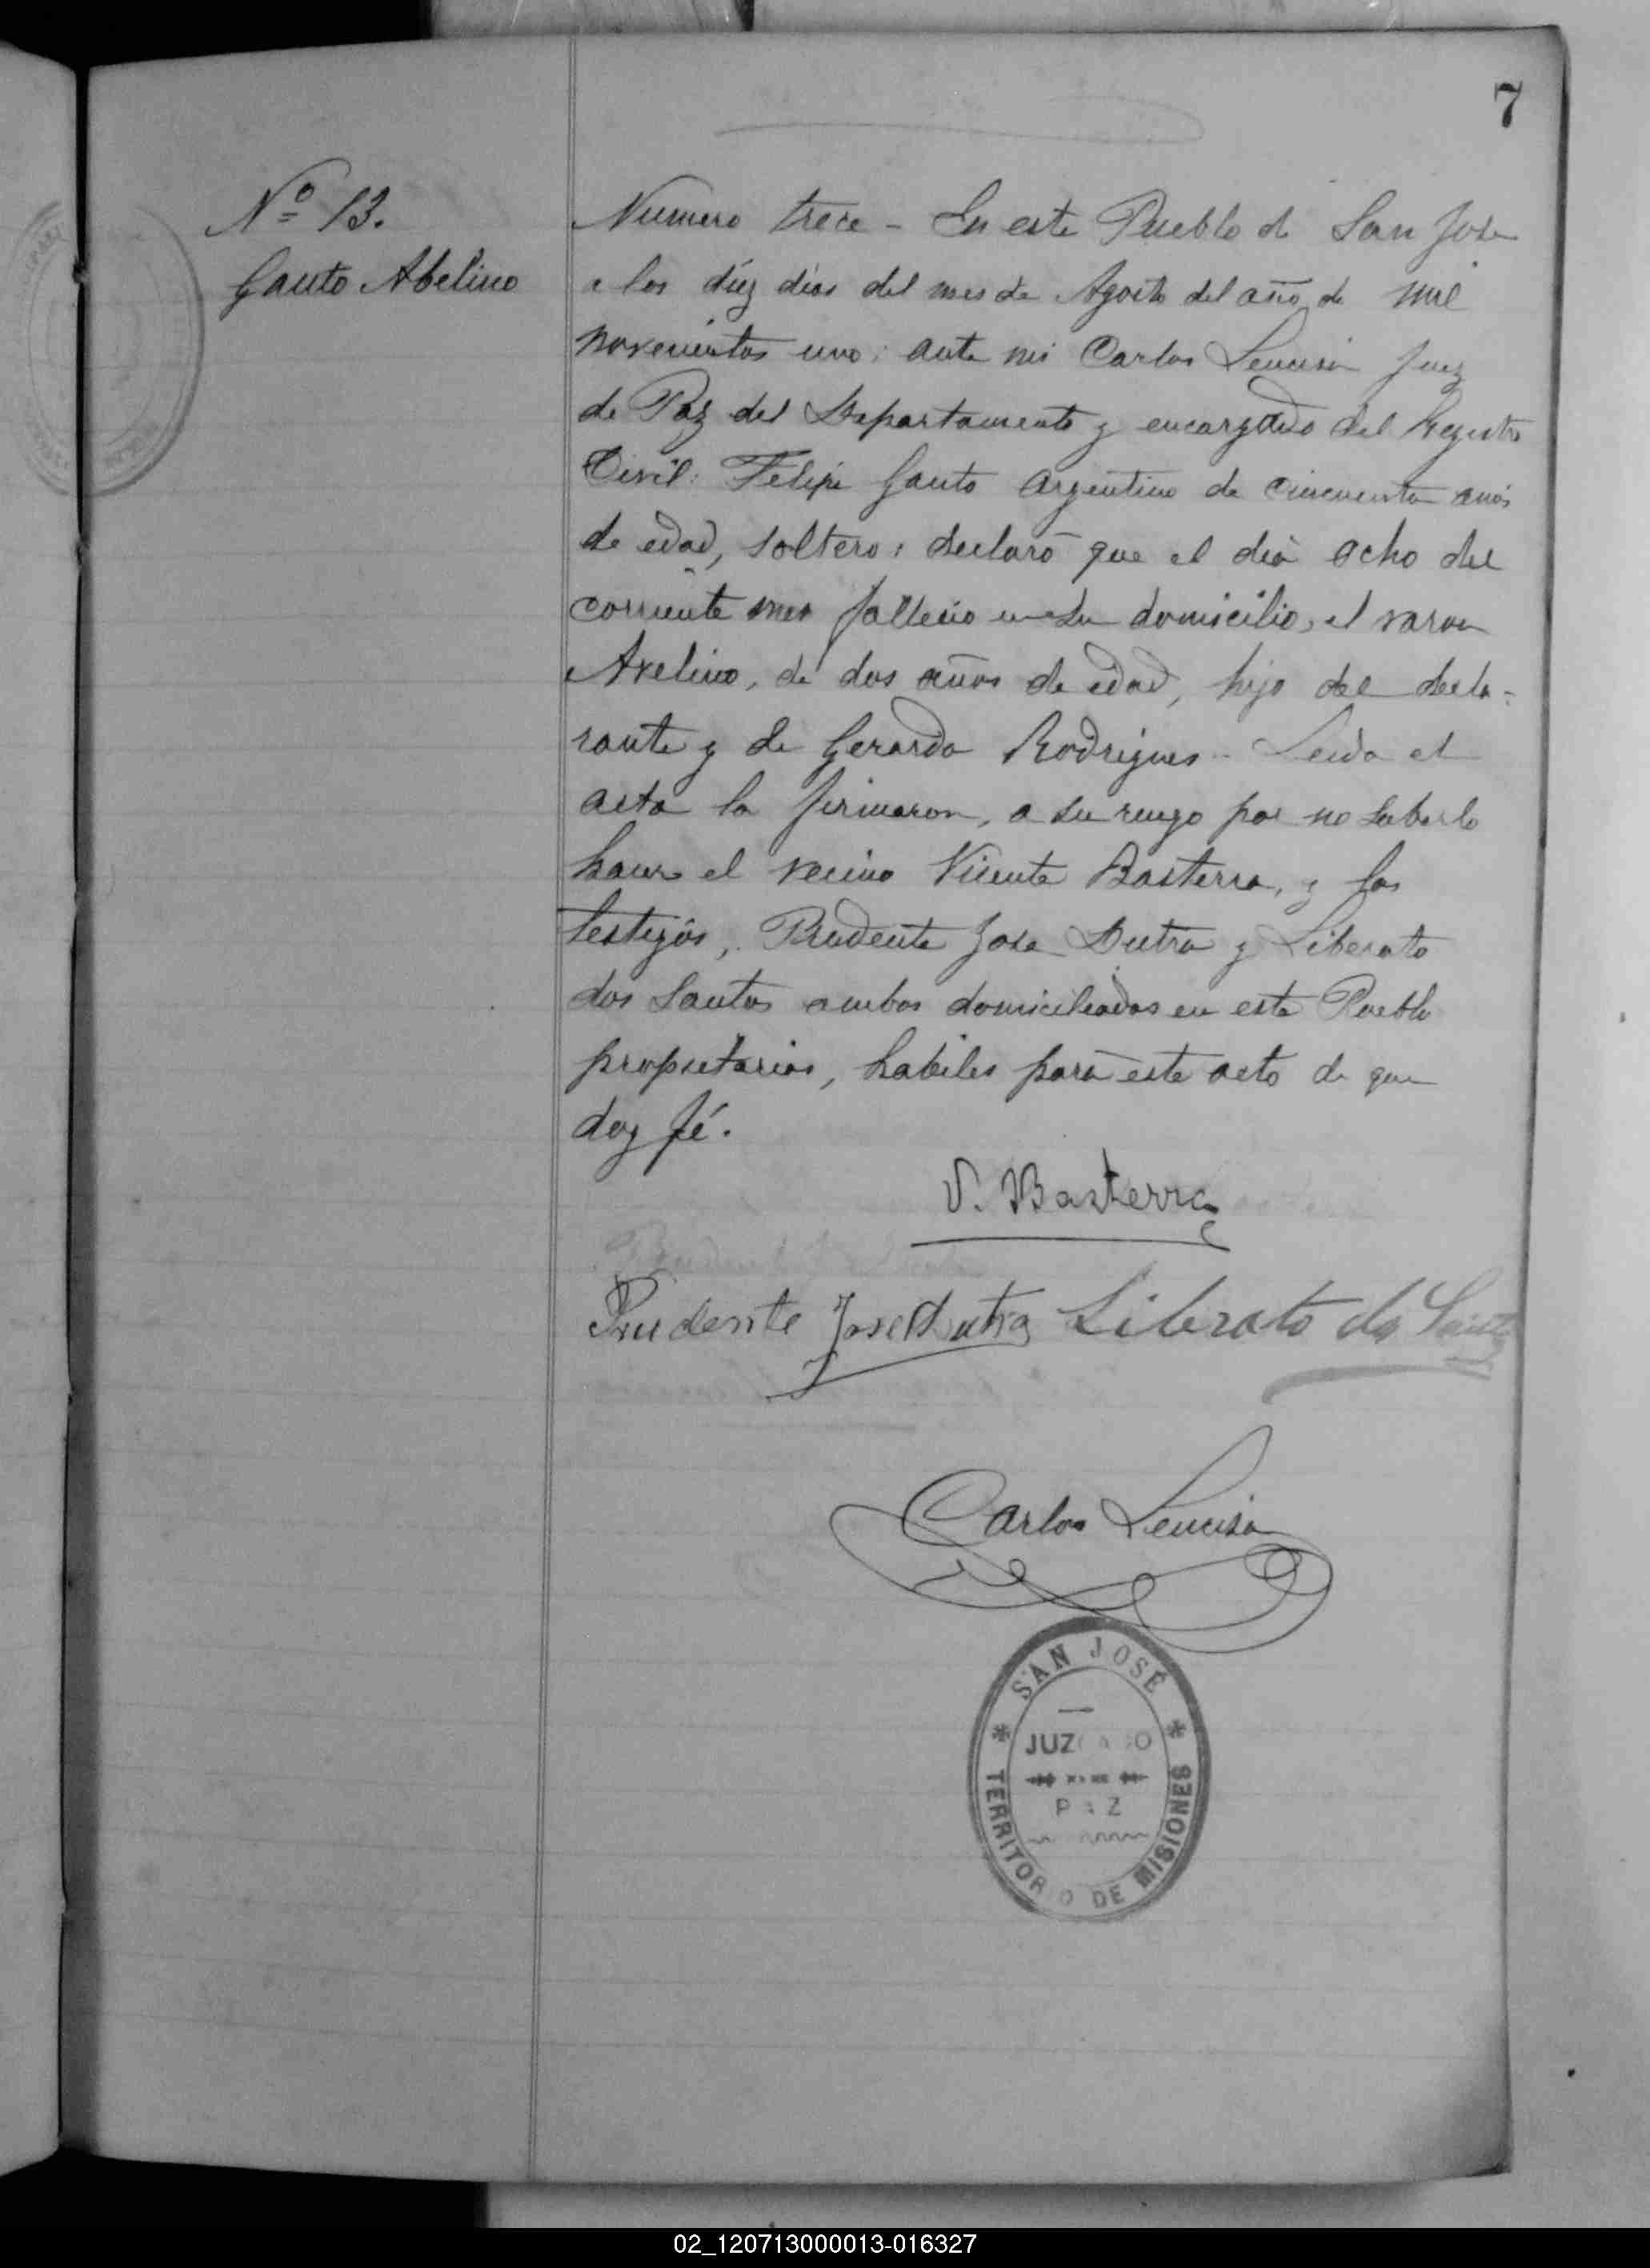 7
Nº 13.
Gauto Abelino
Numero trece - En este Pueblo de San José
a los diez dias del mes de Agosto del año de mil
novecientos uno: ante mi Carlos Juez
de Paz del Departamento y encargado del Registro
Civil: Felipe Gauto Argentino de cincuenta años
de edad, soltero: declaró que el dia ocho del
corriente mes fallecio en su domicilio, el varon
Avelino, de dos años de edad, hijo del decla-
rante y de Gerarda Rodrigues - Leida el
acta la firmaron, a su ruego por no saberlo
hacer el vecino Vicente Basterra, y los
testigos, Prudente Jose Dutra y Liberato
dos Santos ambos domiciliados en este Pueblo
propietarios, habiles para este acto de que
doy fé.
V. Basterra
Prudente Jose Dutra Liberato do Santo
Carlos
SAN JOSÉ
JUZGADO
PAZ
TERRITORIO DE MISIONES
02_120713000013-016327